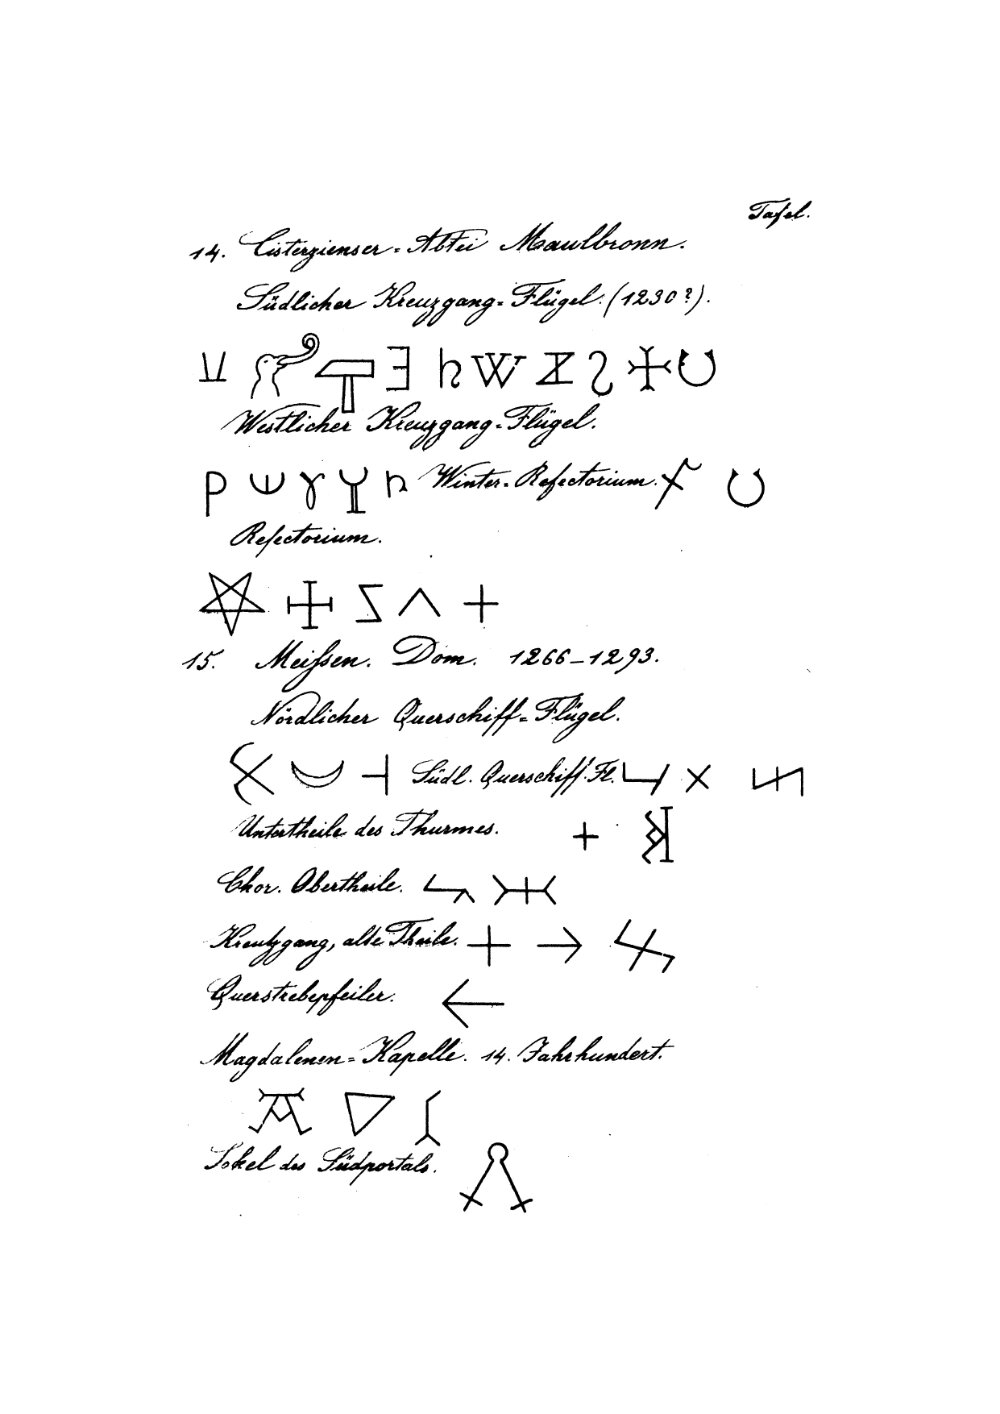 Tafel.
14. Cisterzienser=Abtei Maulbronn.
Südlicher Kreuzgang=Flügel.(1230?).
Westlicher Kreuzgang=Flügel.
Winter=Refectorium.
Refectorium.
15. Meißen. Dom. 1266–1293.
Nördlicher Querschiff=Flügel.
Südl. Querschiff.Fl.
Untertheile des Thurmes.
Chor. Obertheile.
Kreutzgang, alte Theile.
Querstrebepfeiler.
Magdalenen=Kapelle. 14. Jahrhundert.
Sokel des Südportals.